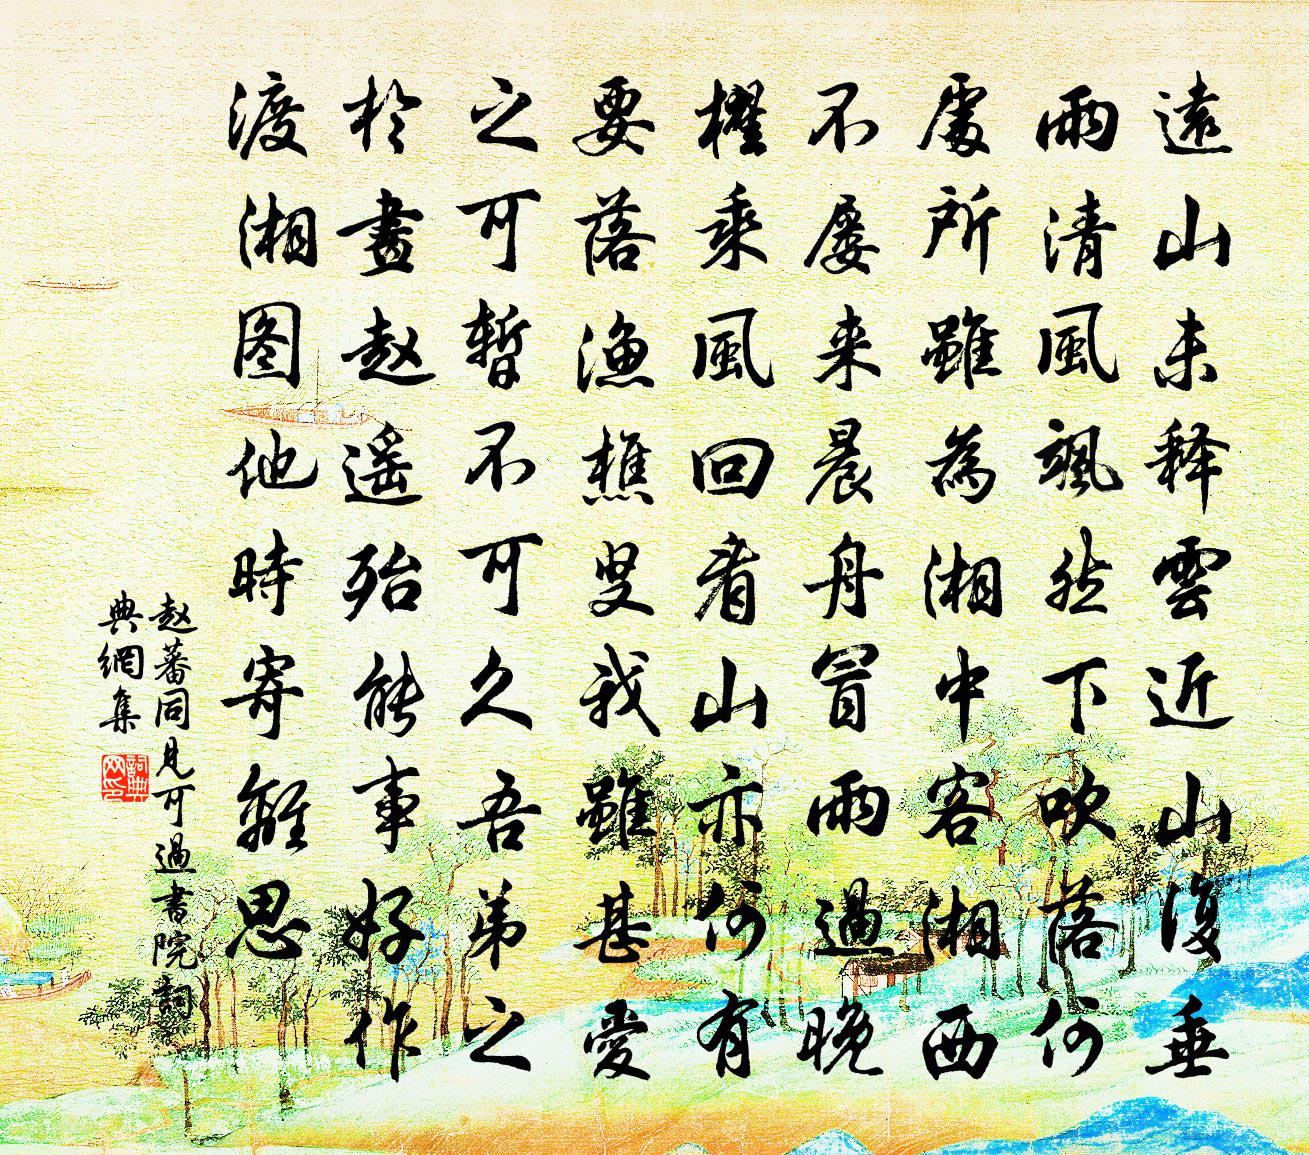 遠山未释雲近山復垂
雨清風颯然下吹落何
處所雖為湘中客湘西
不屡来晨舟冒雨過晚
櫂乘風回看山亦何有
要落漁樵叟我雖甚愛
之可暫不可久吾弟之
於畫赵遥殆能事好作
渡湘图他時寄離思
赵蕃同見可過書院詞
典網集
詞典網印